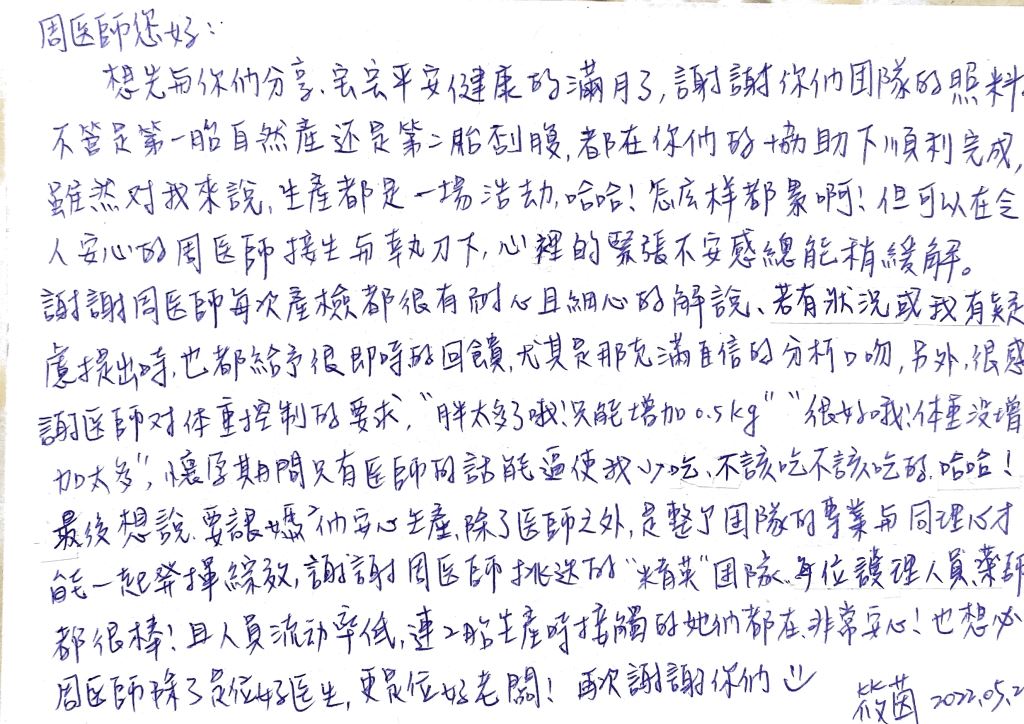 周医師您好：
想先与你們分享、宝宝平安健康的滿月了，謝謝你們团隊的照料。
不管是第一胎自然產还是第二胎剖腹，都在你們的協助下順利完成，
雖然对我來說，生產都是一場浩劫，哈哈！怎庅样都累啊！但可以在令
人安心的周医師接生与執刀下，心裡的緊張不安感總能稍緩解。
謝謝周医師每次產檢都很有耐心且細心的解說、若有狀況或我有疑
慮提出時，也都給予很即時的回饋，尤其是那充滿自信的分析口吻，另外，很感
謝医師对体重控制的要求，“胖太多了哦！只能增加0.5kg”“很好哦！体重沒增
加太多”，懷孕期間只有医師的話能逼使我少吃、不該吃不該吃的．哈哈！
最後想說．要讓媽媽們安心生產，除了医師之外，是整个团隊的專業与同理心才
能一起發揮綜效，謝謝周医師挑选的“精英”团隊、每位護理人員、藥師
都很棒！且人員流动率低，連2胎生產時接觸的她們都在、非常安心！也想必
周医師除了是位好医生，更是位好老闆！再次謝謝你們
筱茵 2022.05.2